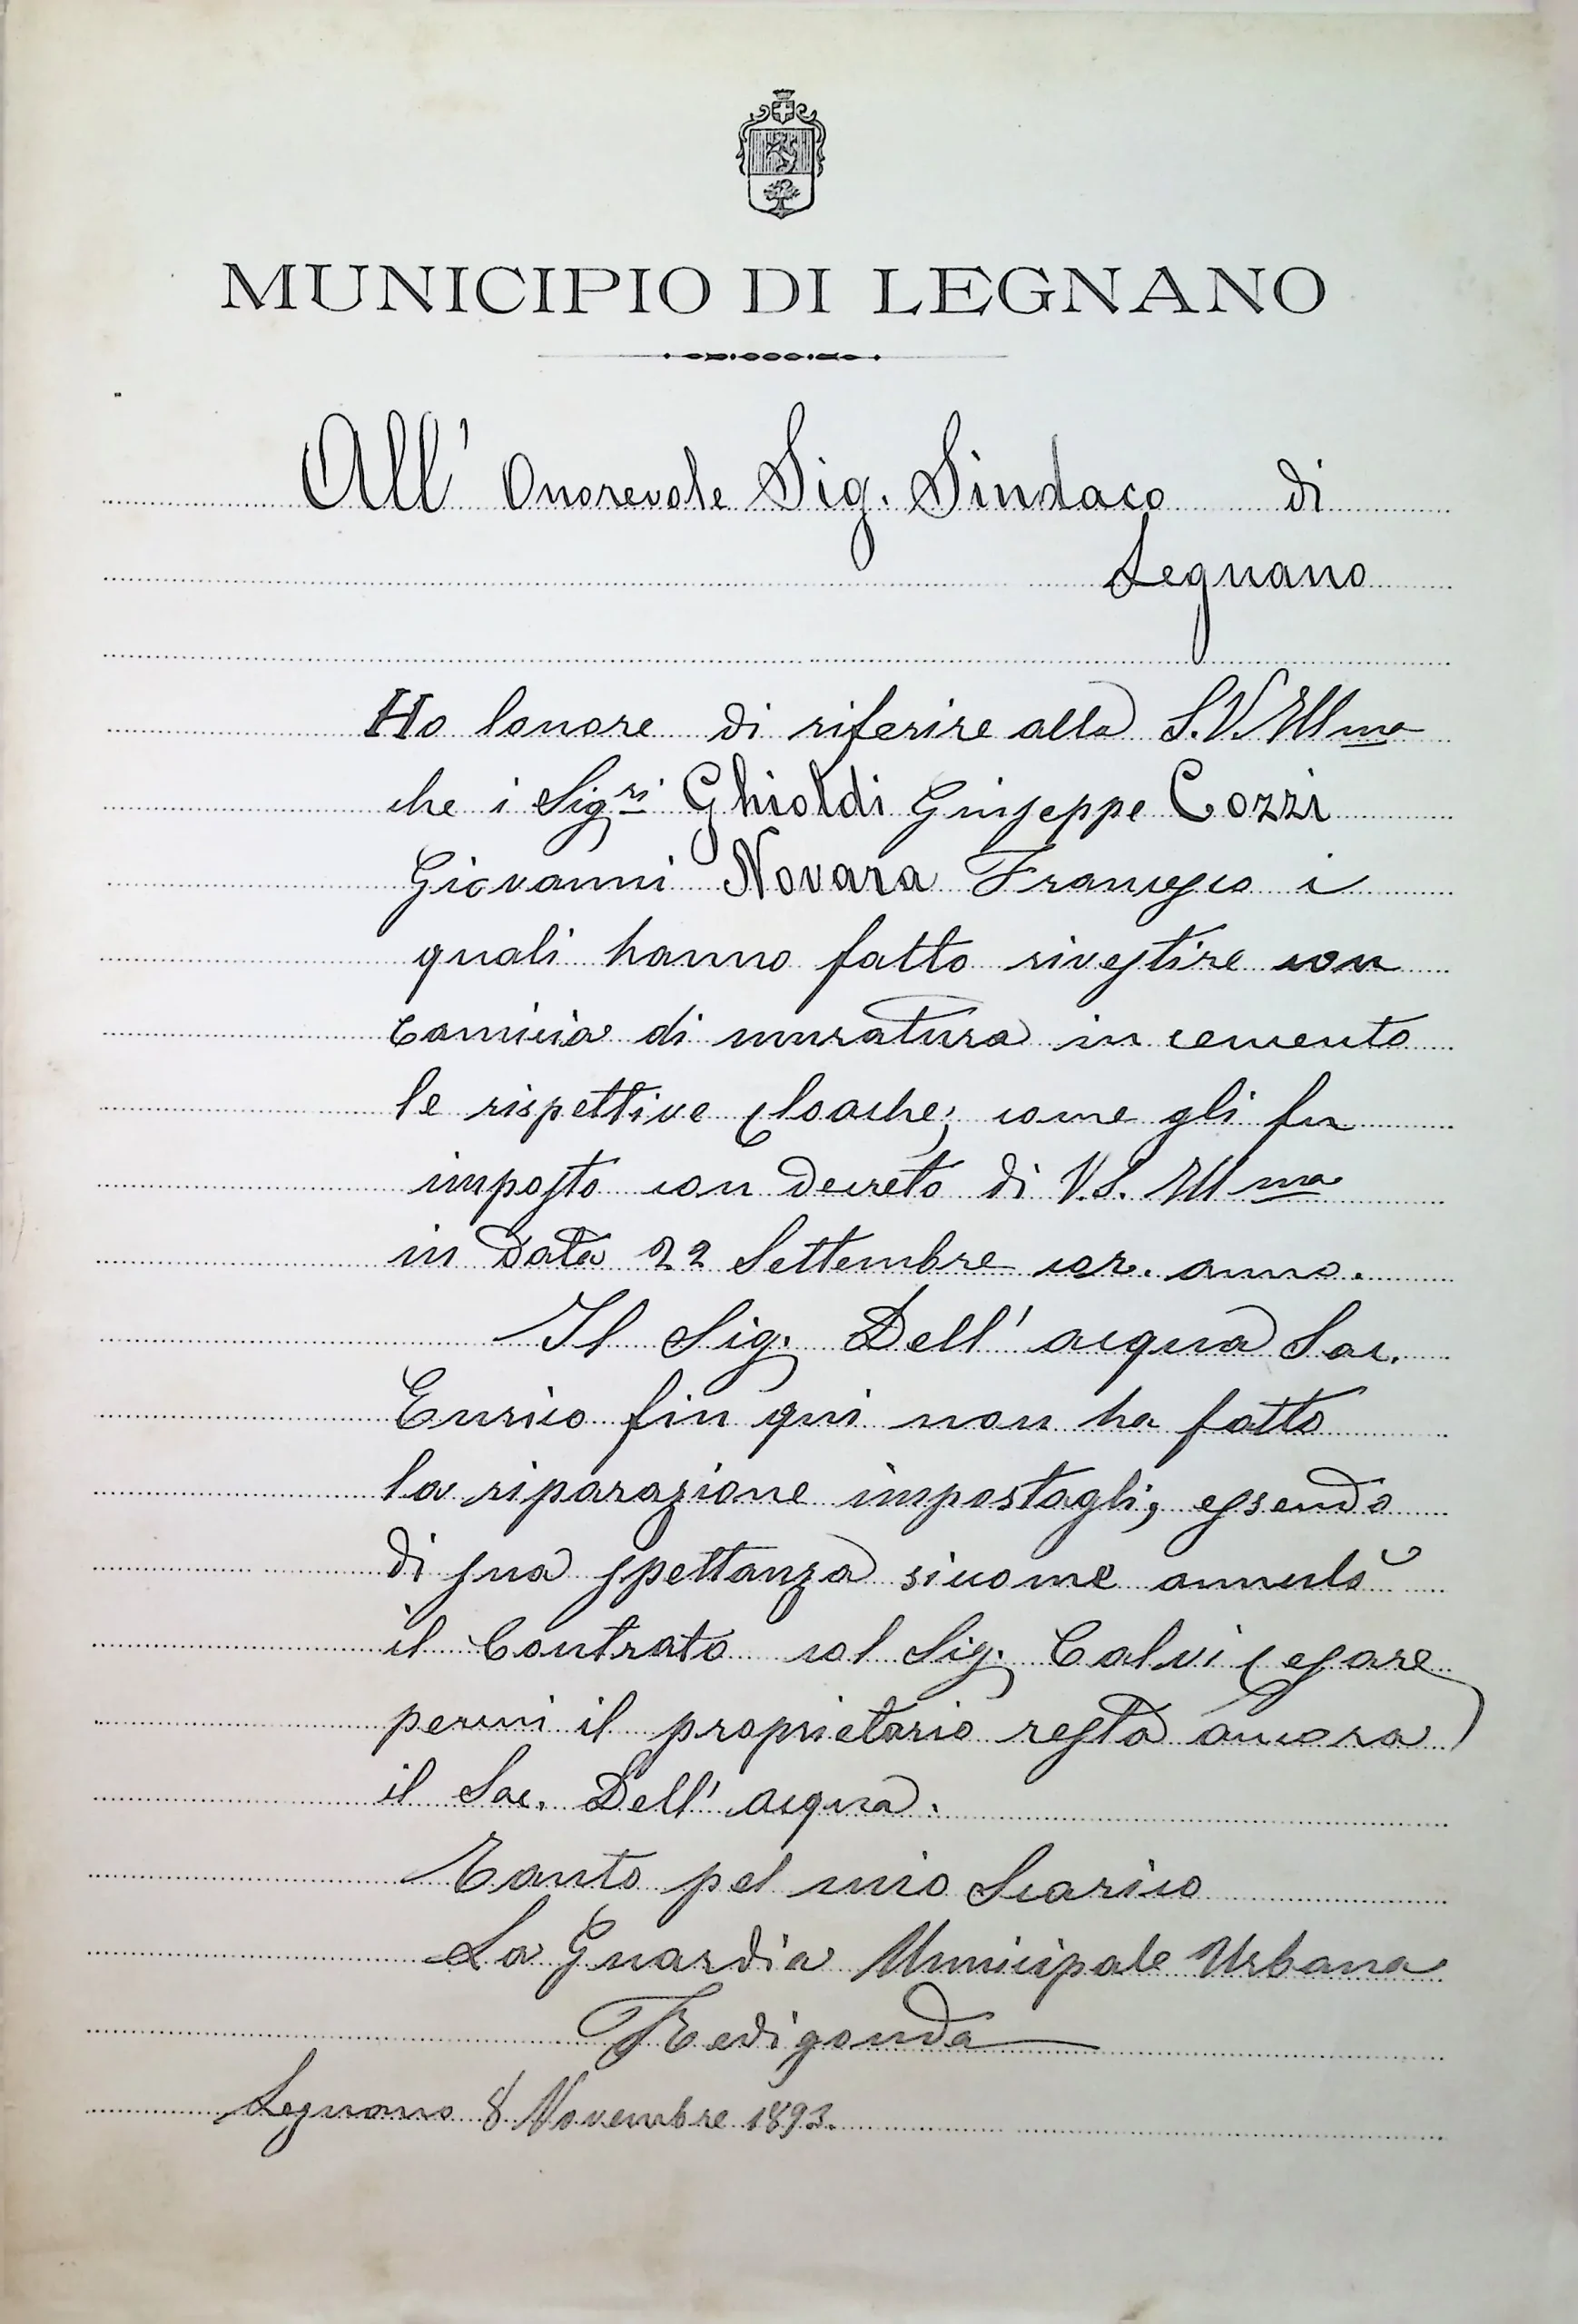 MUNICIPIO DI LEGNANO
All' Onorevole Sig. Sindaco di
Legnano
Ho lonore di riferire alla S.V. Illma
che i Sigri Ghioldi Giuseppe Cozzi
Giovanni Novara Francesco i
quali hanno fatto rivestire con
camicia di muratura in cemento
le rispettive cloache; come gli fu
imposto con decreto di V.S. Illma
in data 22 Settembre cor. anno.
Il Sig. Dell' acqua Sac.
Enrico fin qui non ha fatto
la riparazione impostagli; essendo
di sua spettanza sicome annulò
il Contrato col Sig. Calvi Cesare
percui il proprietario resta ancora
il Sac. Dell' acqua.
Tanto pel mio Scarico
La Guardia Municipale Urbana
Tredigonda
Legnano 8 Novembre 1893.